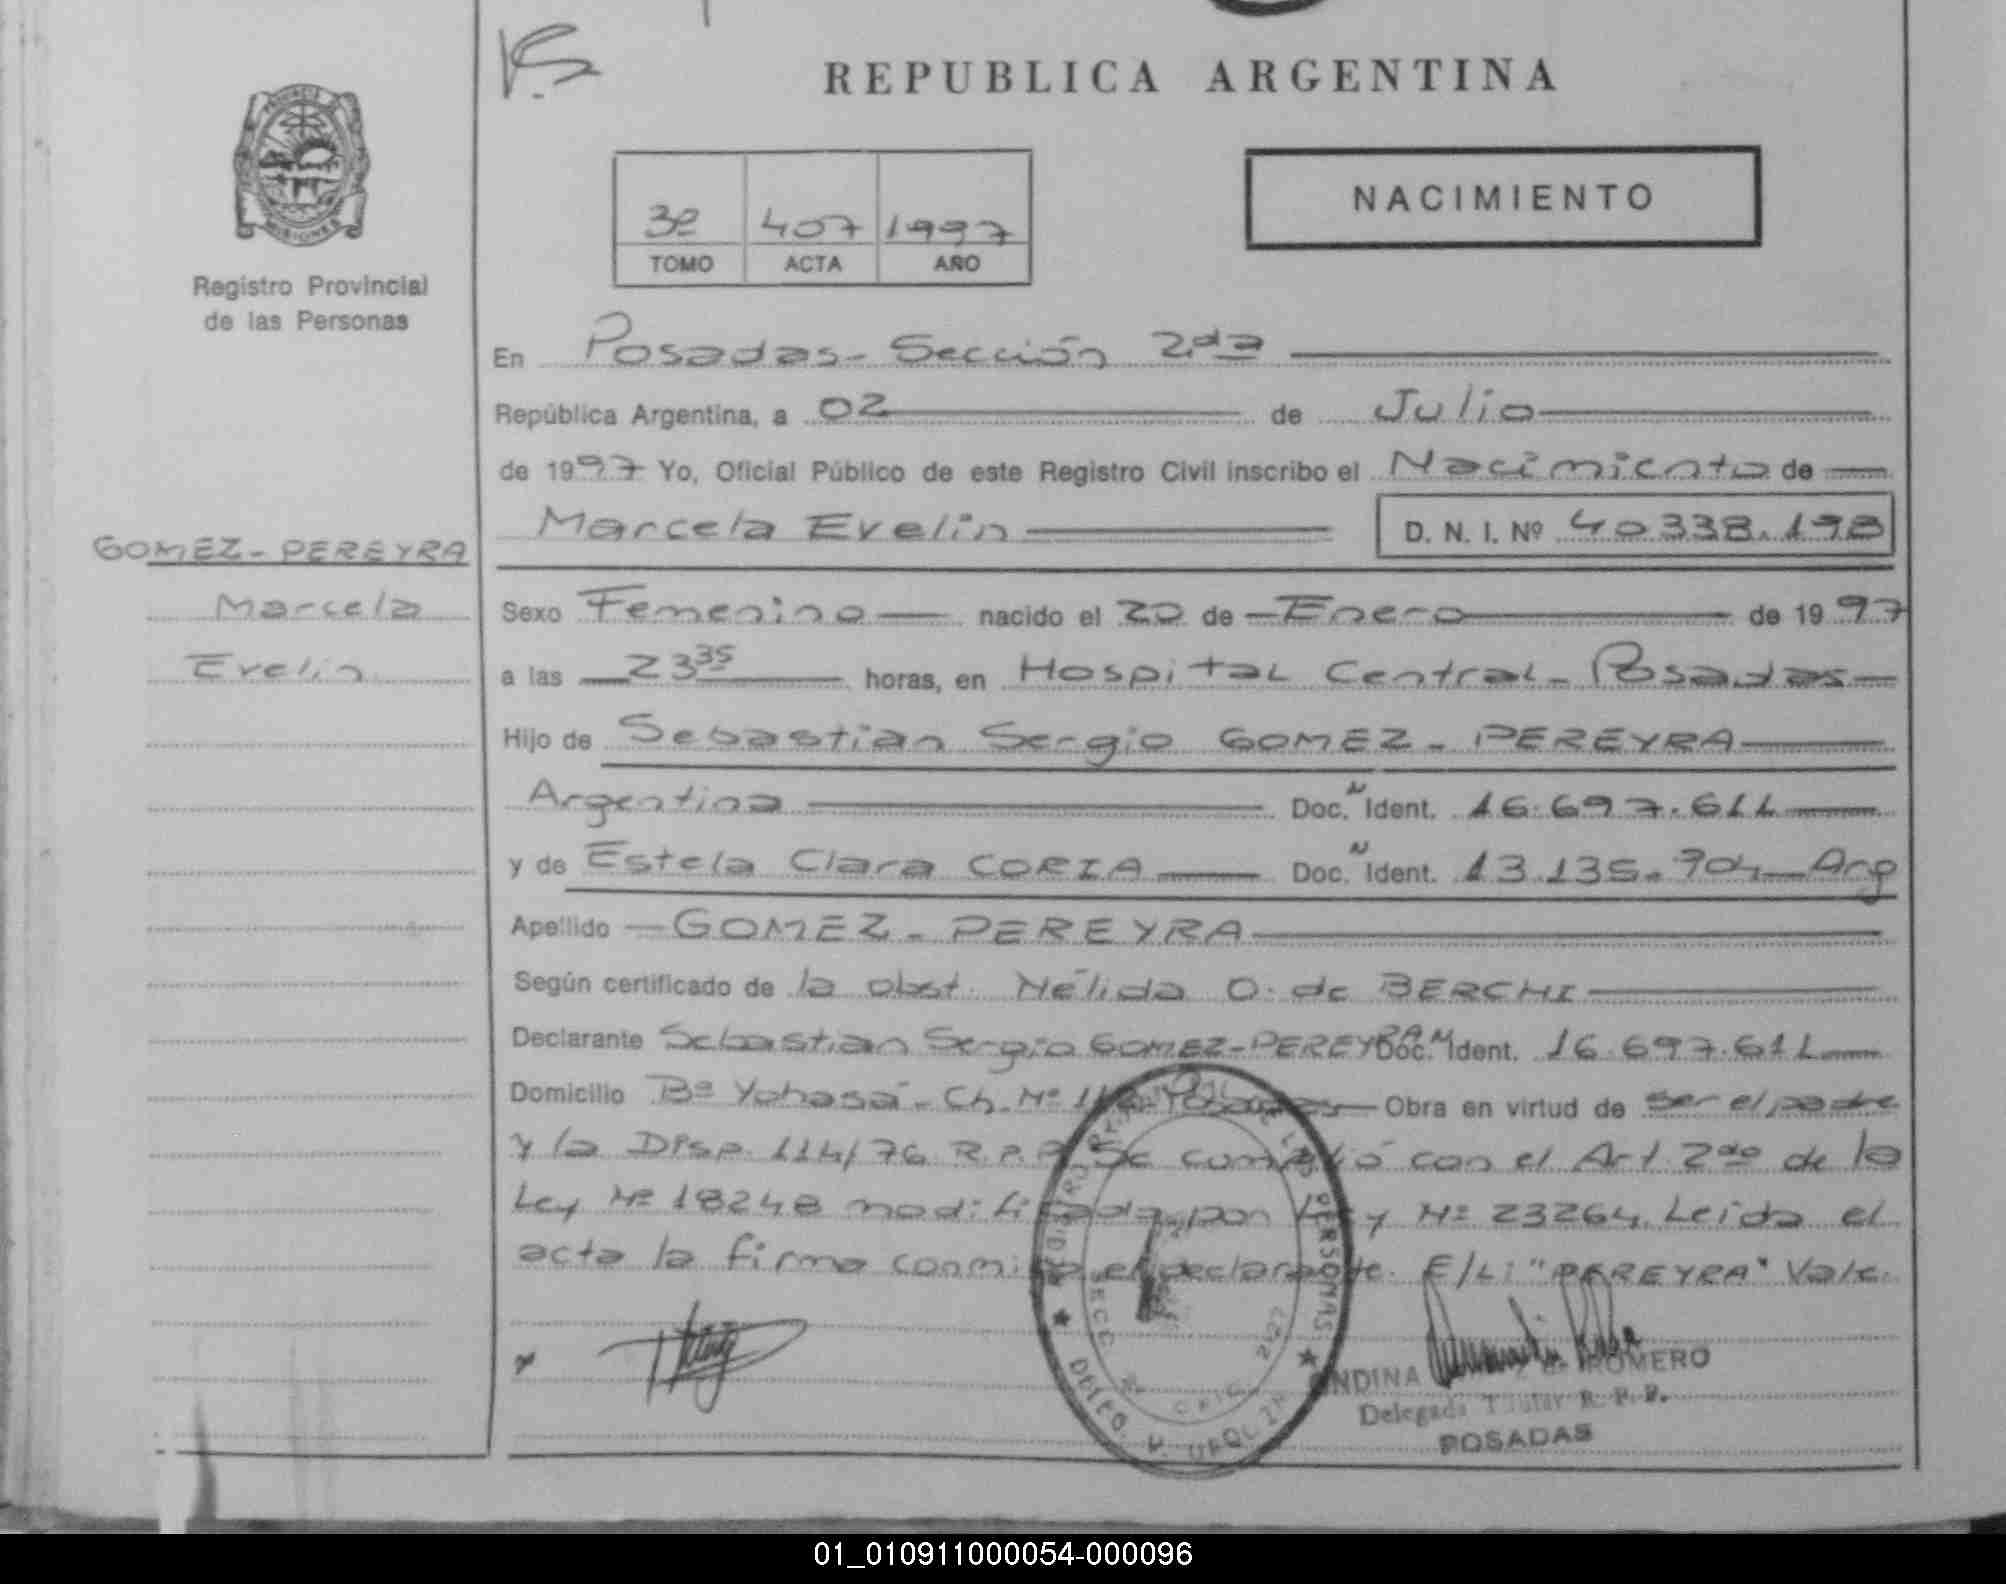 REPUBLICA ARGENTINA
PROVINCIA DE
MISIONES
Registro Provincial
de las Personas
3º 407 1997
TOMO ACTA AÑO
NACIMIENTO
En Posadas - Sección 2da
República Argentina, a 02 de Julio
de 1997 Yo, Oficial Público de este Registro Civil inscribo el Nacimiento de
Marcela Evelin D. N. I. Nº 40338.198
GOMEZ - PEREYRA
Marcela
Evelin
Sexo Femenino nacido el 20 de Enero de 1997
a las 23 35 horas, en Hospital Central - Posadas
Hijo de Sebastian Sergio GOMEZ - PEREYRA
Argentina Doc. N Ident. 16.697.611
y de Estela Clara CORIA Doc. N Ident. 13.135.704 Arg
Apellido GOMEZ - PEREYRA
Según certificado de la obst. Nélida O. de BERCHI
Declarante Sebastian Sergio GOMEZ-PEREYRA Doc. N Ident. 16.697.611
Domicilio Bº Yohasá - Ch. Nº Posadas Obra en virtud de ser el padre
y la Disp. 114/76 R.P.P. Se cumplió con el Art 2do de la
Ley Nº 18248 modificada por Ley Nº 23264. Leida el
acta la firma conmigo el declarante. E/L: "PEREYRA" Vale.
DE LAS PERSONAS
DELEG.
URQUIZA
ROMERO
Delegada Titular R. P. P.
POSADAS
01_010911000054-000096